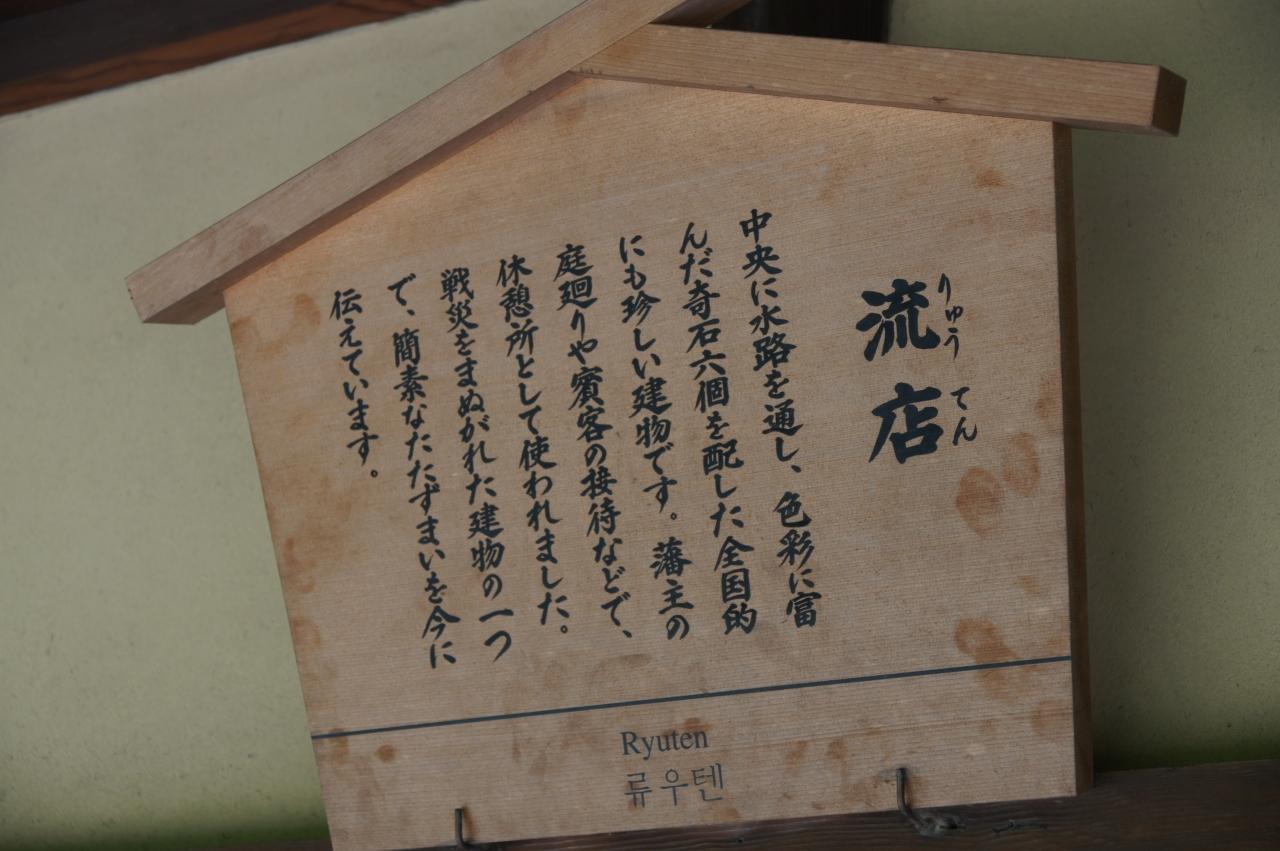 流店
りゅうてん
中央に水路を通し、色彩に富
んだ奇石六個を配した全国的
にも珍しい建物です。藩主の
庭廻りや賓客の接待などで、
休憩所として使われました。
戦災をまぬがれた建物の一つ
で、簡素なたたずまいを今に
伝えています。
Ryuten
류우텐